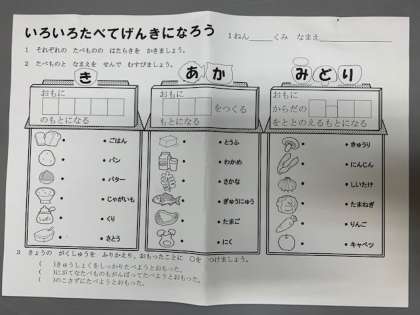 いろいろたべてげんきになろう
1ねん＿＿＿くみ なまえ＿＿＿
1 それぞれの たべものの はたらきを かきましょう。
2 たべものと なまえを せんで むすびましょう。
き
おもに
のもとになる
ごはん
パン
バター
じゃがいも
くり
さとう
あか
おもに
をつくる
もとになる
とうふ
わかめ
さかな
ぎゅうにゅう
たまご
にく
みどり
おもに
からだの
をととのえるもとになる
きゅうり
にんじん
しいたけ
たまねぎ
りんご
キャベツ
3 きょうの がくしゅうを ふりかえり、おもったことに ○を つけましょう。
( )きゅうしょくをしっかりたべようとおもった。
( )にがてなたべものもがんばってたべようとおもった。
( )のこさずにたべようとおもった。